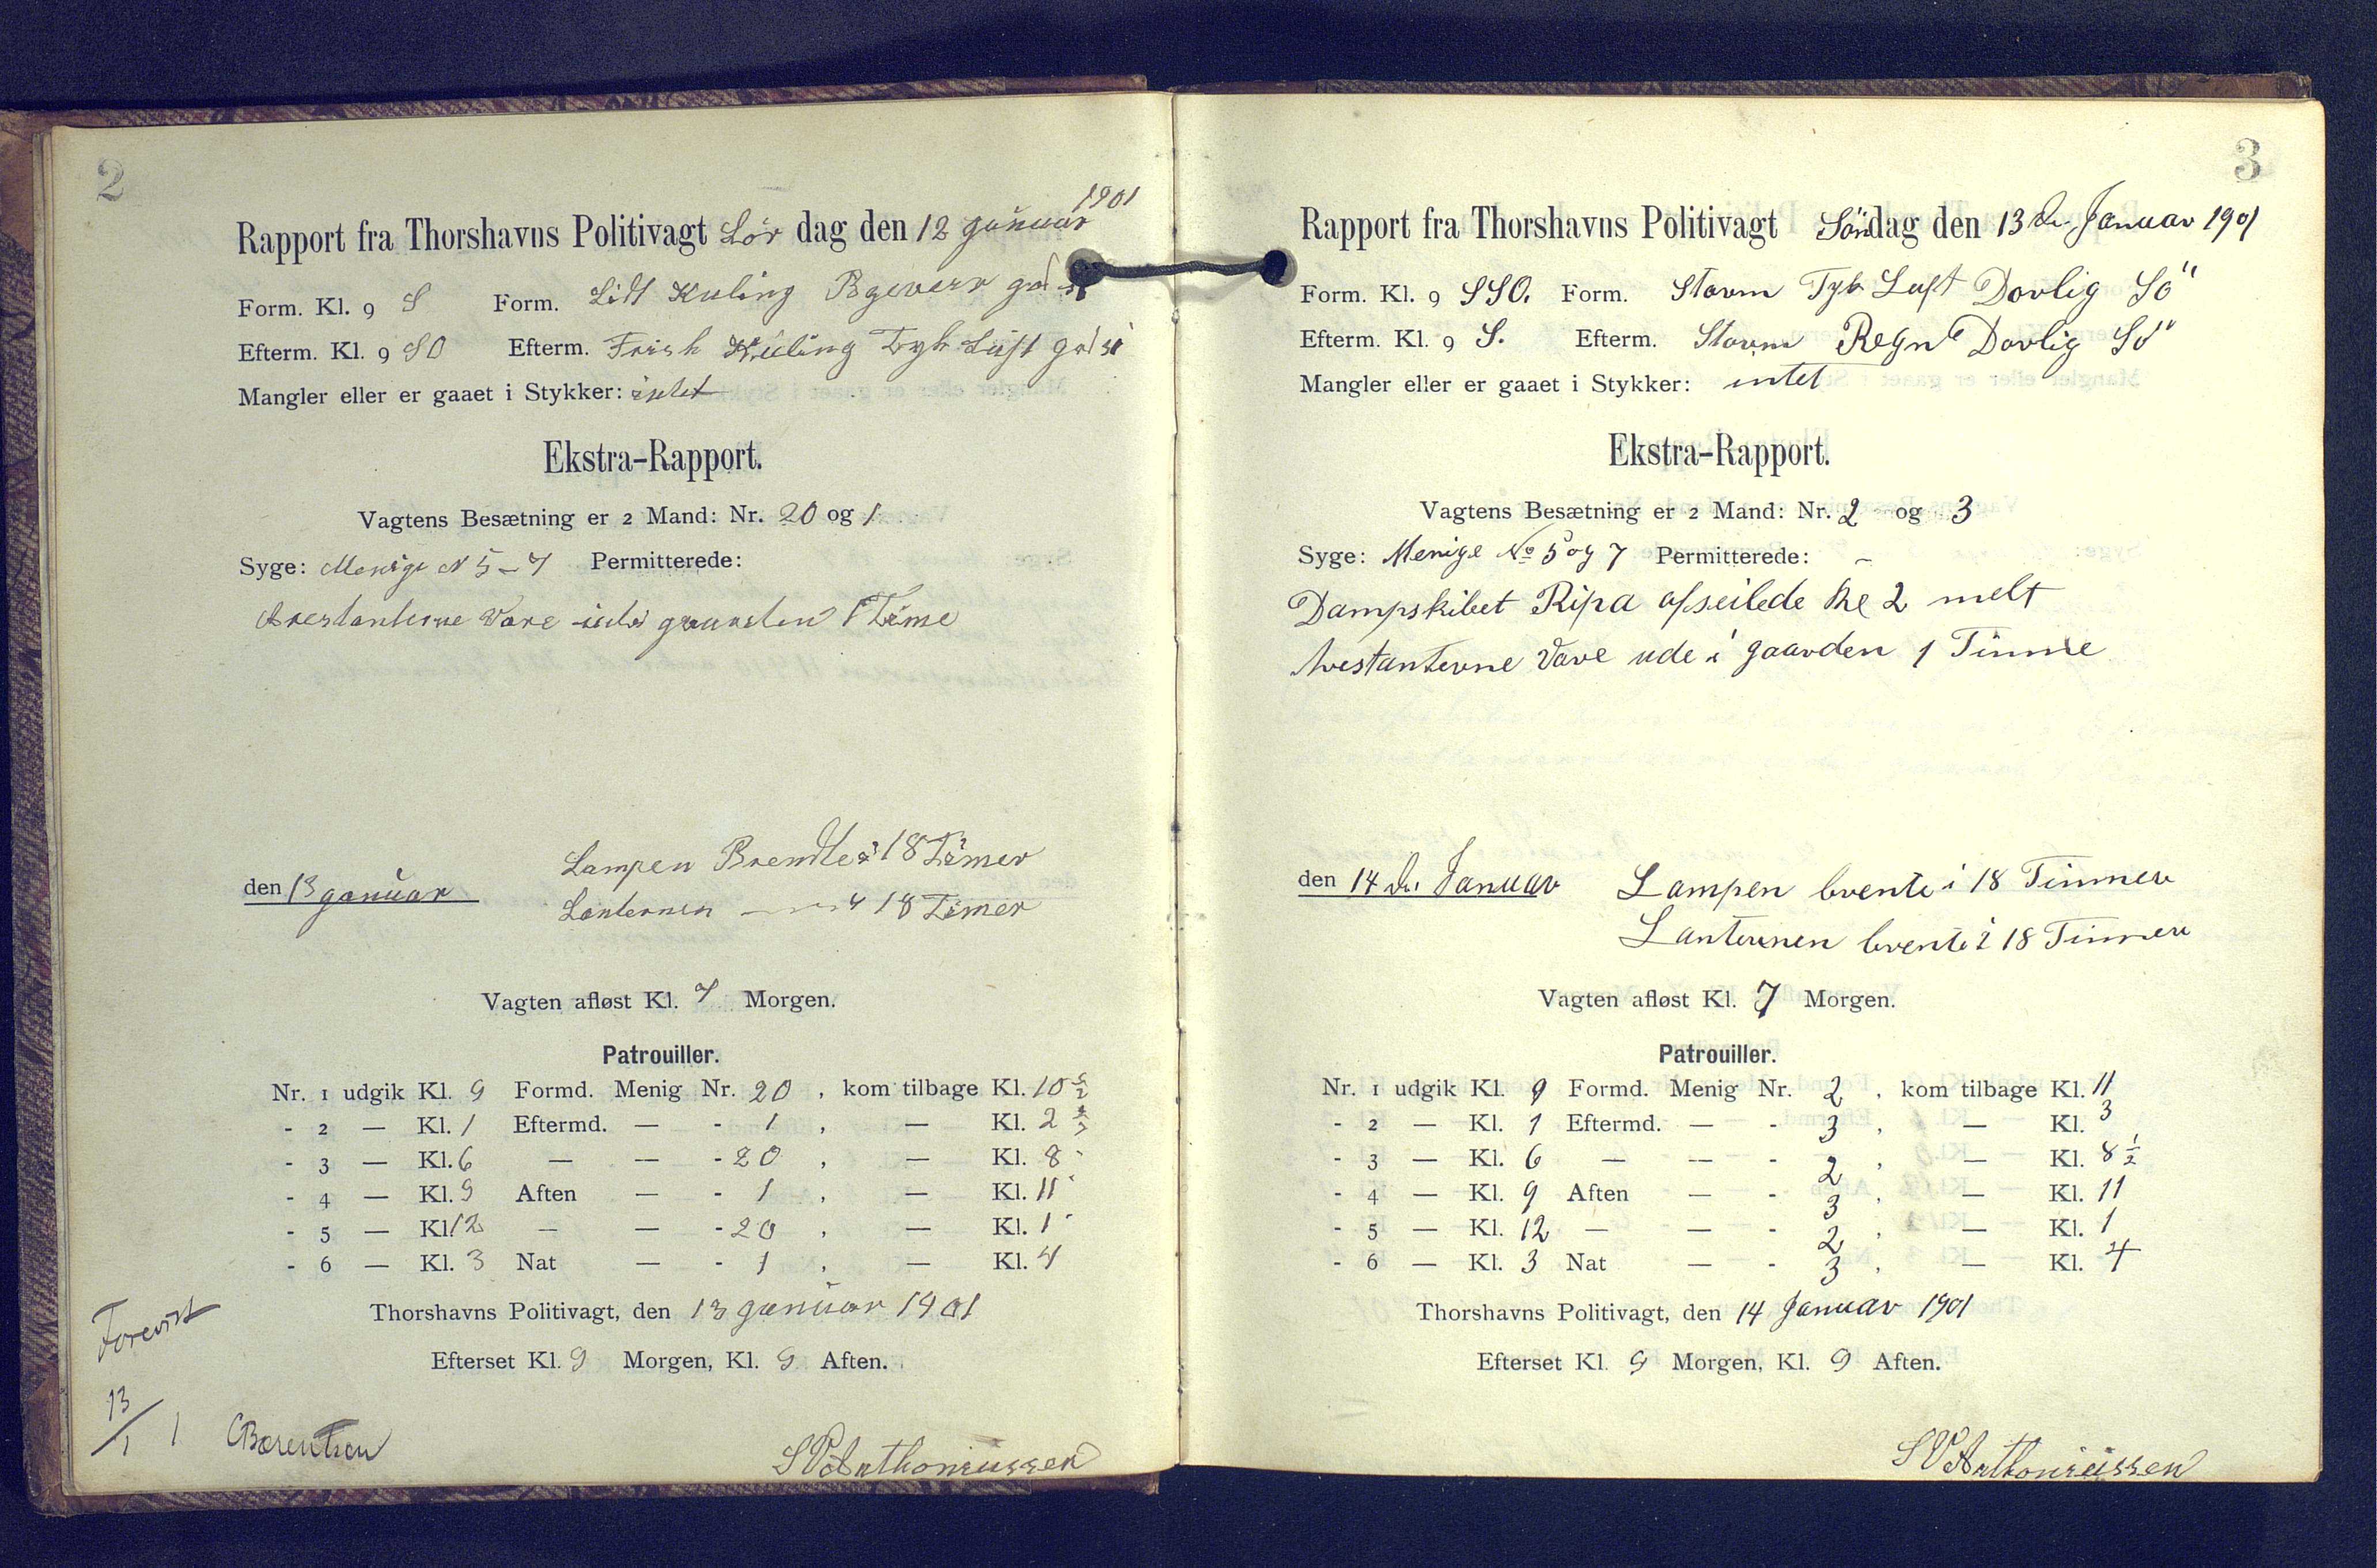 2
1901
Rapport fra Thorshavns Politivagt Lör dag den 12 januar
Form. Kl. 9 S Form. Lidt Kuling Bgeveir god sö
Efterm. Kl. 9 SO Efterm. Frisk Kuling Tyk Luft god sö
Mangler eller er gaaet i Stykker: intet
Ekstra-Rapport.
Vagtens Besætning er 2 Mand: Nr. 20 og 1
Syge: Menige N 5 - 7 Permitterede:
Arestanterne Vare 1 Time
Lampen Brendte i 18 Timer
den 13 januar
Lanternen — " — 18 Timer
Vagten afløst Kl. 7 Morgen.
Patrouiller.
Nr. 1 udgik Kl. 9 Formd. Menig Nr. 20 , kom tilbage Kl. 10 ½
- 2 — Kl. 1 Eftermd. — - 1 , — Kl. 2 ½
- 3 — Kl. 6 — — - 20 , — Kl. 8
- 4 — Kl. 9 Aften — - 1 , — Kl. 11
- 5 — Kl. 12 — — - 20 , — Kl. 1
- 6 — Kl. 3 Nat — - 1 , — Kl. 4
Thorshavns Politivagt, den 13 januar 1901
Efterset Kl. 9 Morgen, Kl. 9 Aften.
Forevist
13/1
CBærentsen
SVAnthoniussen
3
Rapport fra Thorshavns Politivagt Söndag den 13 de Januar 1901
Form. Kl. 9 SSO. Form. Storm Tyk Luft Dovlig Sö
Efterm. Kl. 9 S. Efterm. Storm Regn Dovlig Sö
Mangler eller er gaaet i Stykker: intet
Ekstra-Rapport.
Vagtens Besætning er 2 Mand: Nr. 2 og 3
Syge: Menige No 5 og 7 Permitterede: –
Dampskibet Ripa afseilede Kl 2 melt
Arestanterne Vare ude i gaarden 1 Timme
den 14 de Januar Lampen brente i 18 Timmer
Lanternen brente i 18 Timmer
Vagten afløst Kl. 7 Morgen.
Patrouiller.
Nr. 1 udgik Kl. 9 Formd. Menig Nr. 2 , kom tilbage Kl. 11
- 2 — Kl. 1 Eftermd. — - 3 , — Kl. 3
- 3 — Kl. 6 — — - 2 , — Kl. 8 ½
- 4 — Kl. 9 Aften — - 3 , — Kl. 11
- 5 — Kl. 12 — — - 2 , — Kl. 1
- 6 — Kl. 3 Nat — - 3 , — Kl. 4
Thorshavns Politivagt, den 14 Januar 1901
Efterset Kl. 9 Morgen, Kl. 9 Aften.
SVAnthoniussen